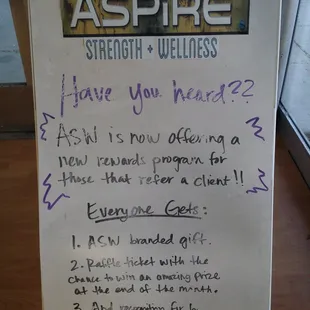 ASPIRE
STRENGTH + WELLNESS
Have you heard??
ASW is now offering a
new rewards program for
those that refer a client!!
Everyone Gets:
1. ASW branded gift.
2. Raffle ticket with the
chance to win an amazing prize
at the end of the month.
3. And recognition for